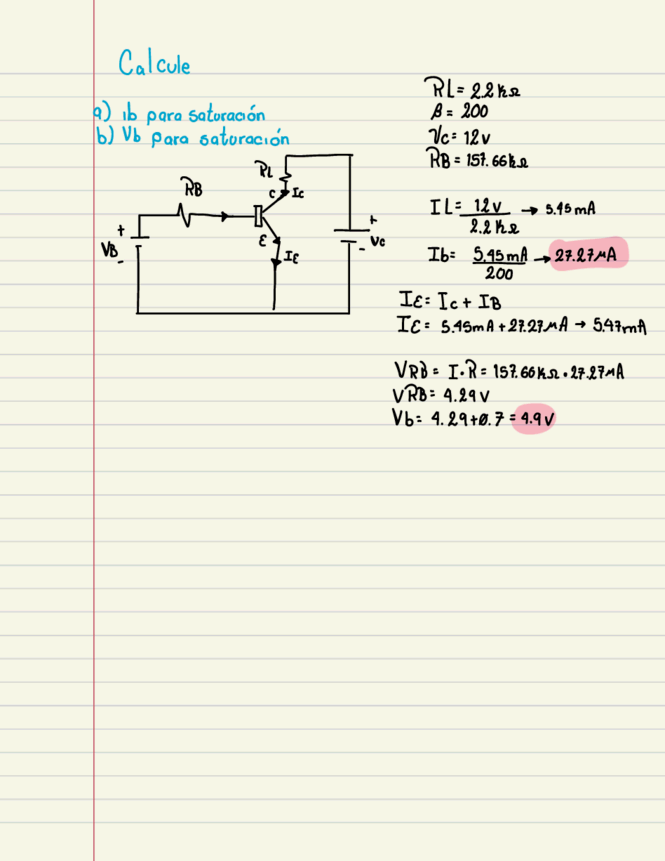 Calcule
a) ib para saturación
b) Vb para saturación
RL = 2.2kΩ
β = 200
Vc = 12v
RB = 157.66kΩ
RL
RB
C
Ic
+
VB
-
ε
Iε
+
Vc
-
IL = 12v / 2.2kΩ → 5.45mA
Ib = 5.45mA / 200 → 27.27μA
Iε = Ic + IB
Iε = 5.45mA + 27.27μA → 5.47mA
VRB = I·R = 157.66kΩ · 27.27μA
VRB = 4.29v
Vb = 4.29 + 0.7 = 4.9v